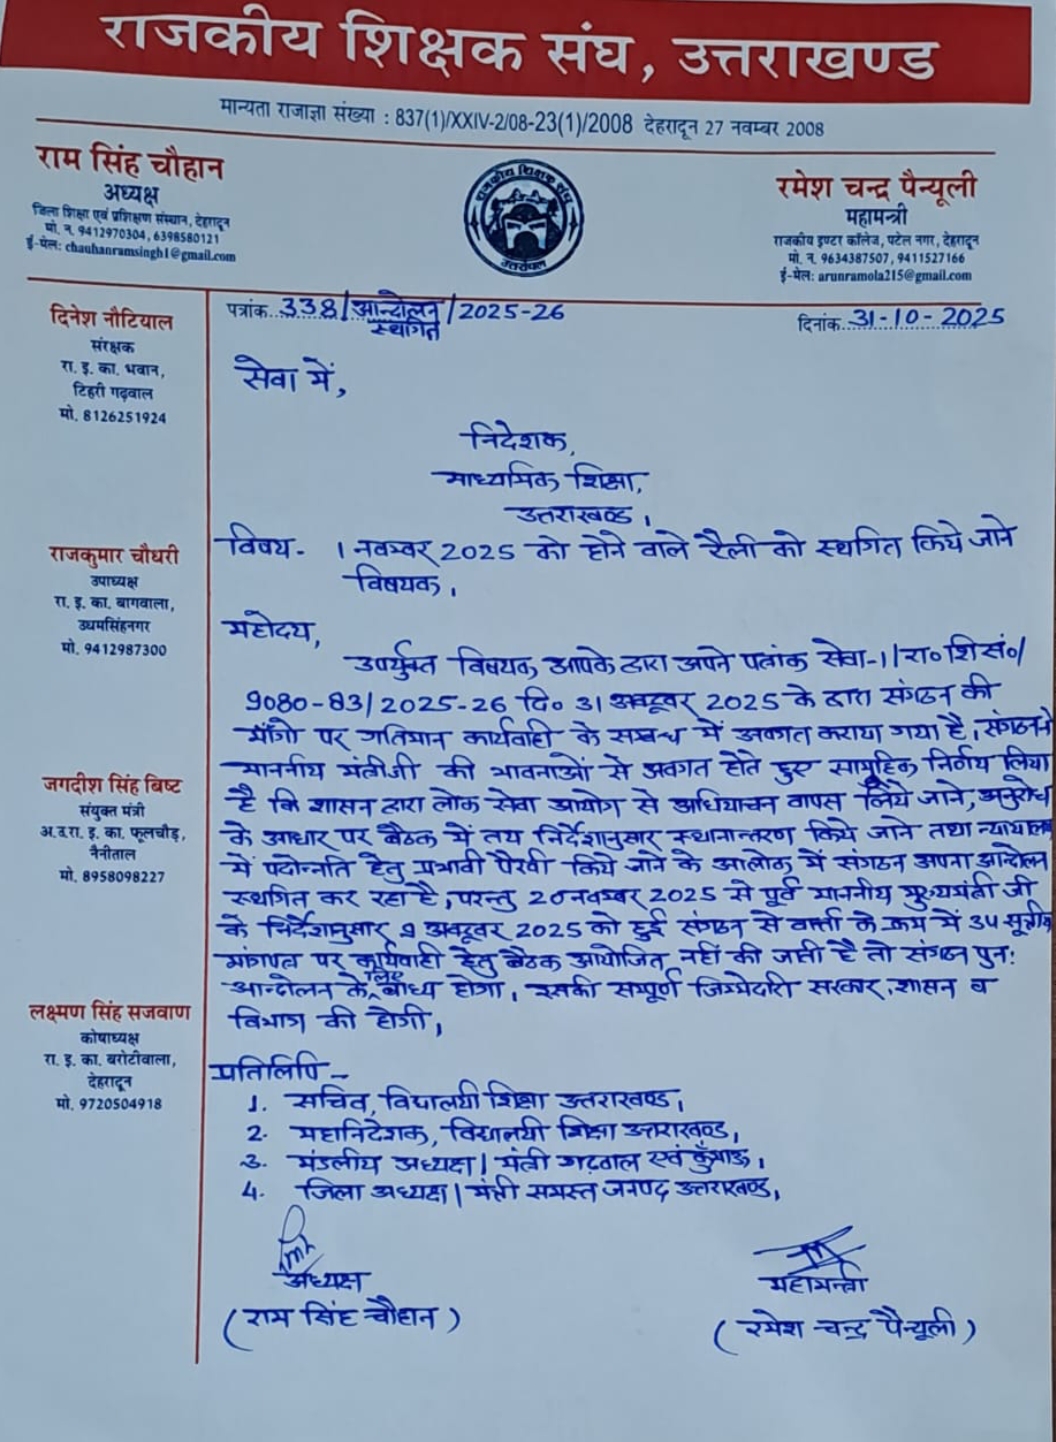 राजकीय शिक्षक संघ, उत्तराखण्ड
मान्यता राजाज्ञा संख्या : 837(1)/XXIV-2/08-23(1)/2008 देहरादून 27 नवम्बर 2008
राम सिंह चौहान
अध्यक्ष
जिला शिक्षा एवं प्रशिक्षण संस्थान, देहरादून
मो. न. 9412970304, 6398580121
ई-मेल: chauhanramsingh1@gmail.com
राजकीय शिक्षक संघ
उत्तरांचल
रमेश चन्द्र पैन्यूली
महामन्त्री
राजकीय इण्टर कॉलेज, पटेल नगर, देहरादून
मो. न. 9634387507, 9411527166
ई-मेल: arunramola215@gmail.com
दिनेश नौटियाल
संरक्षक
रा. इ. का. भवान,
टिहरी गढ़वाल
मो. 8126251924
राजकुमार चौधरी
उपाध्यक्ष
रा. इ. का. बागवाला,
उधमसिंहनगर
मो. 9412987300
जगदीश सिंह बिष्ट
संयुक्त मंत्री
अ.उ.रा. इ. का. फूलचौड़,
नैनीताल
मो. 8958098227
लक्ष्मण सिंह सजवाण
कोषाध्यक्ष
रा. इ. का. बरोटीवाला,
देहरादून
मो. 9720504918
पत्रांक 338/आन्दोलन स्थगित/2025-26
दिनांक 31-10-2025
सेवा में,
निदेशक,
माध्यमिक शिक्षा,
उत्तराखण्ड।
विषय- 1 नवम्बर 2025 को होने वाले रैली को स्थगित किये जाने
विषयक।
महोदय,
उपर्युक्त विषयक आपके द्वारा अपने पत्रांक सेवा-1/रा०शि०सं०/
9080-83/2025-26 दि० 31 अक्टूबर 2025 के द्वारा संगठन की
माँगो पर गतिमान कार्यवाही के सम्बन्ध में अवगत कराया गया है। संगठन ने
माननीय मंत्रीजी की भावनाओं से अवगत होते हुए सामूहिक निर्णय लिया
है कि शासन द्वारा लोक सेवा आयोग से अधियाचन वापस लिये जाने, अनुरोध
के आधार पर बैठक में तय निर्देशानुसार स्थानान्तरण किये जाने तथा न्यायालय
में पदोन्नति हेतु प्रभावी पैरवी किये जाने के आलोक में संगठन अपना आन्दोलन
स्थगित कर रहा है, परन्तु 20 नवम्बर 2025 से पूर्व माननीय मुख्यमंत्री जी
के निर्देशानुसार 9 अक्टूबर 2025 को हुई संगठन से वार्ता के क्रम में 34 सूत्रीय
मांगपत्र पर कार्यवाही हेतु बैठक आयोजित नहीं की जाती है तो संगठन पुन:
आन्दोलन के लिए बाध्य होगा। इसकी सम्पूर्ण जिम्मेदारी सरकार, शासन व
विभाग की होगी।
प्रतिलिपि -
1. सचिव, विद्यालयी शिक्षा उत्तराखण्ड।
2. महानिदेशक, विद्यालयी शिक्षा उत्तराखण्ड।
3. मंडलीय अध्यक्ष/मंत्री गढवाल एवं कुँमाऊ।
4. जिला अध्यक्ष/मंत्री समस्त जनपद उत्तराखण्ड।
अध्यक्ष
(राम सिंह चौहान)
महामन्त्री
(रमेश चन्द्र पैन्यूली)